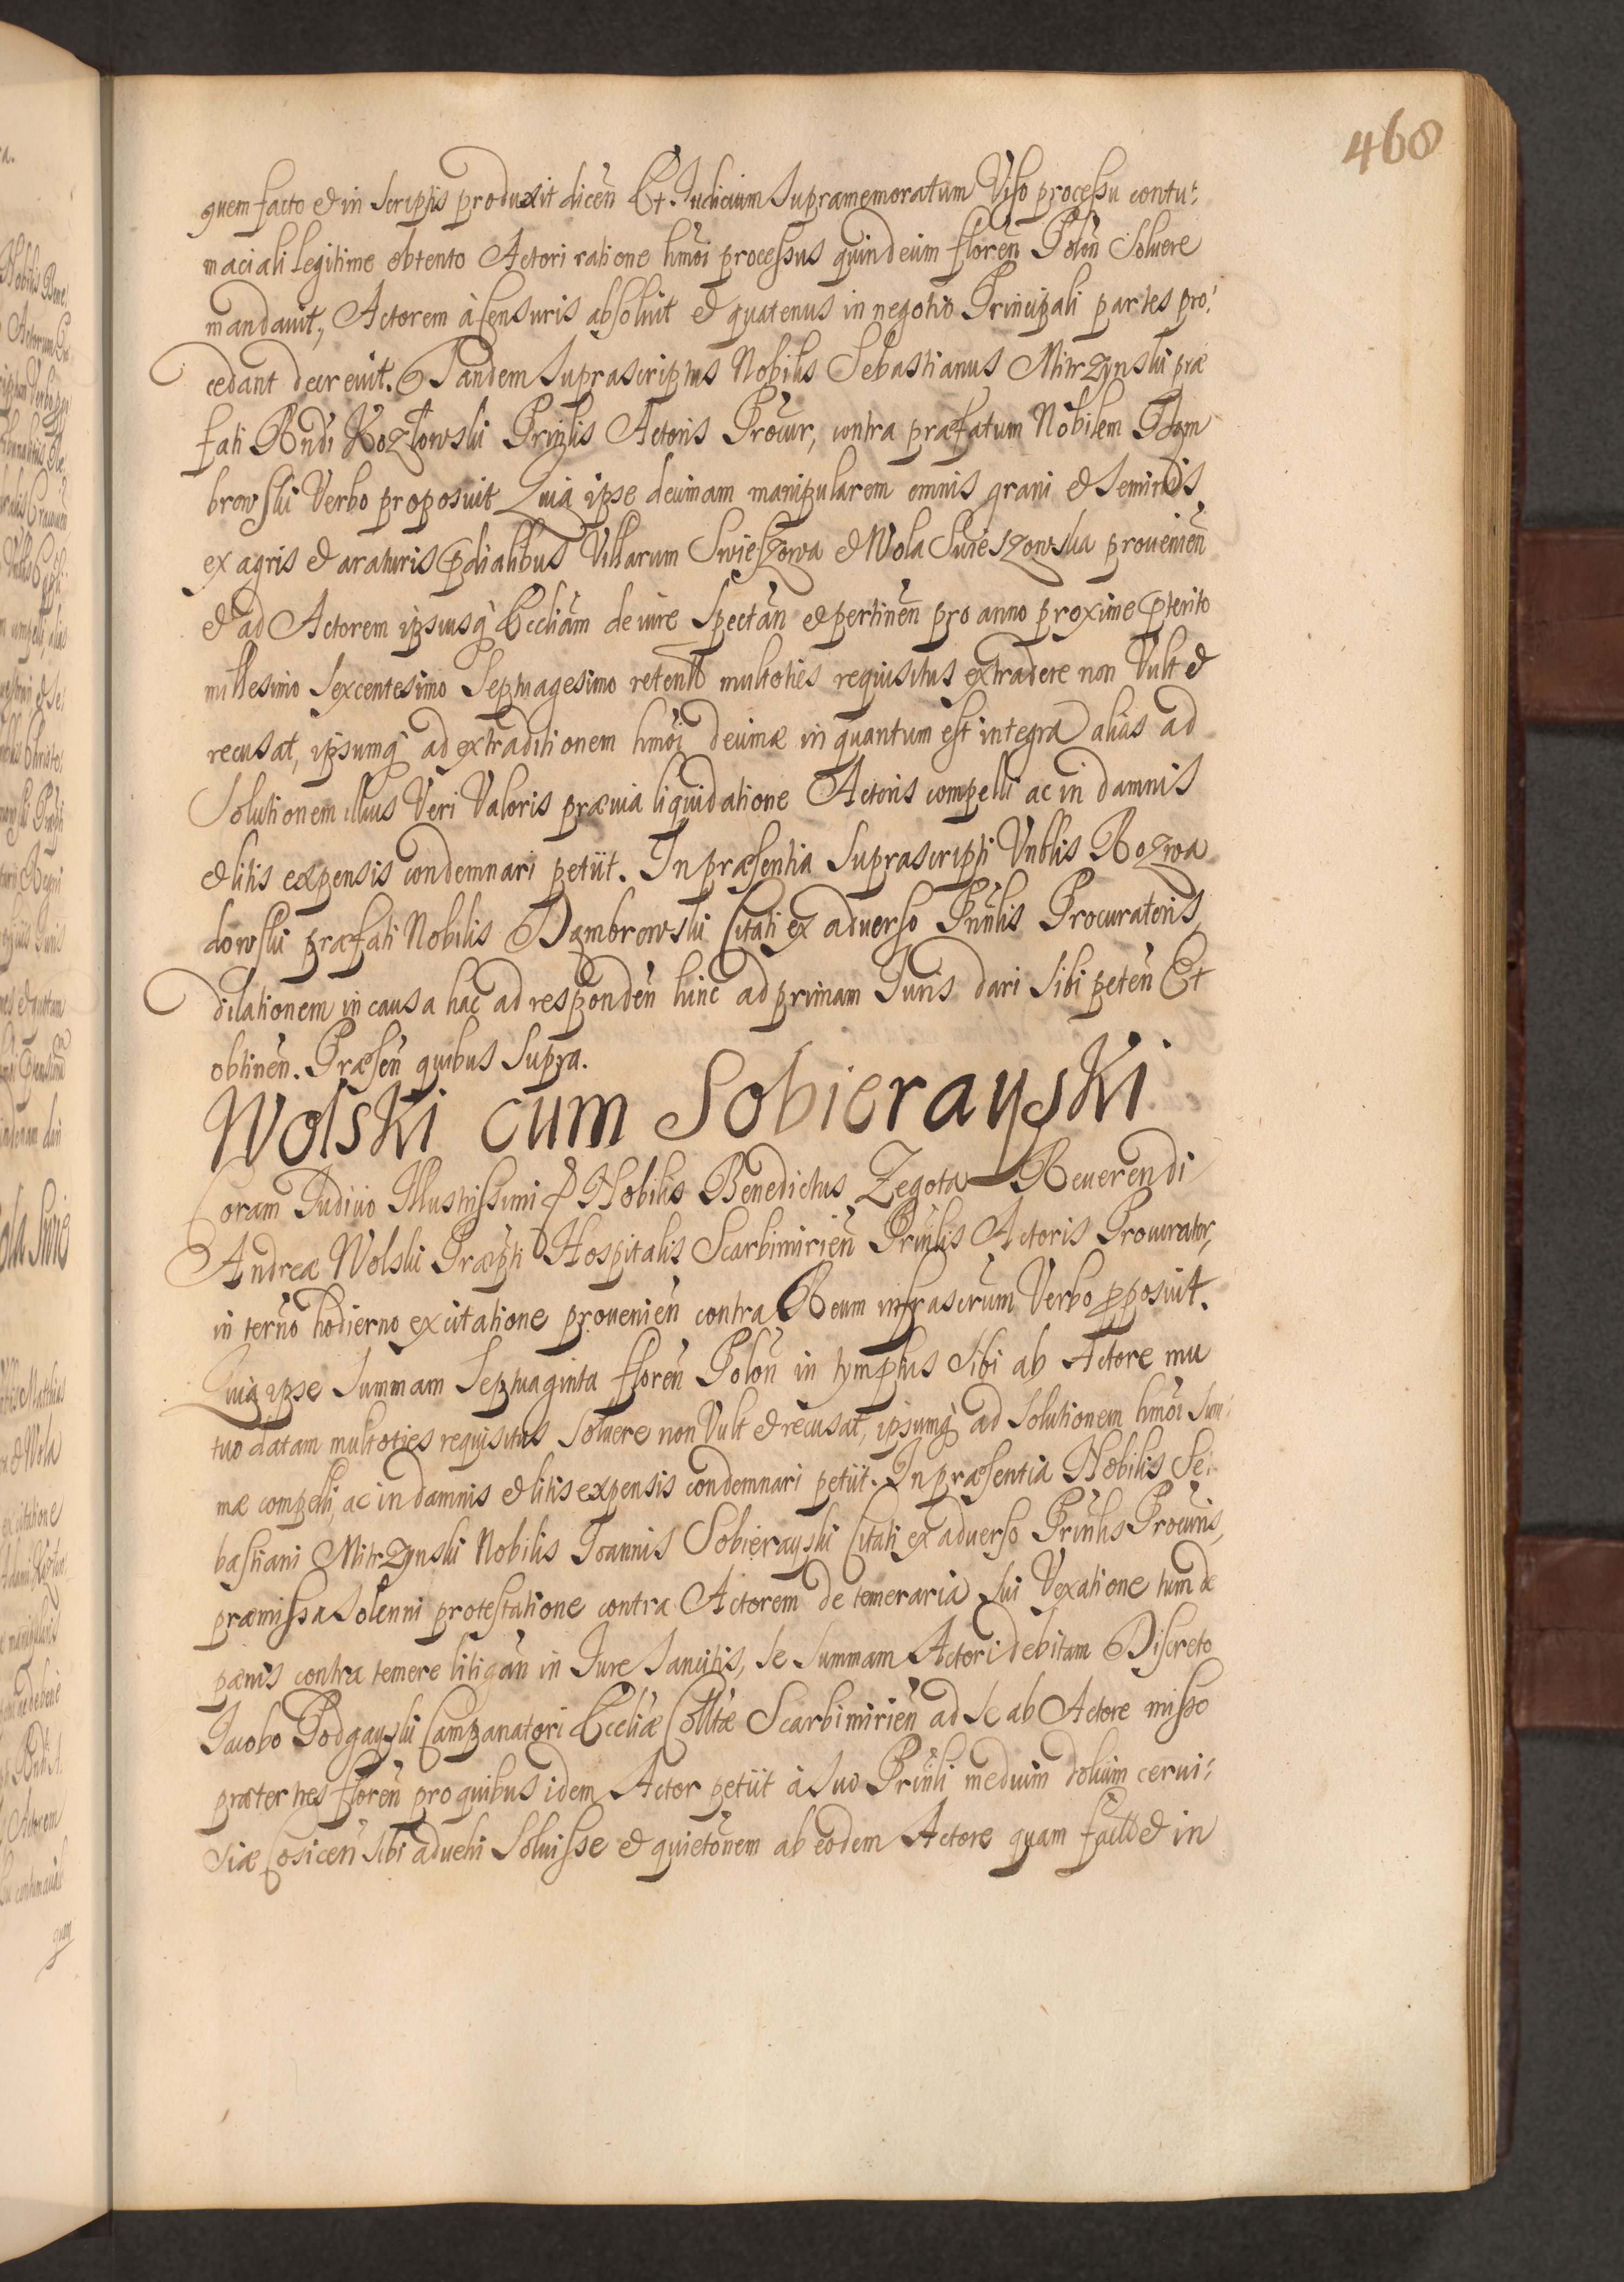 468
quem facto et in scriptis produxit dicen̄ Et Judicium Supramemoratum Viso processu contu-
maciali legitime obtento Actori ratione hm̄oi processus quindecim floren̄ Polōn Soluere
mandauit, Actorem à Censuris absoluit et quatenus in negotio Principali partes pro-
cedant decreuit. Tandem Suprascriptus Nobilis Sebastianus Mitrzynski præ
fati Rn̄di Kozłowski Prin̄lis Actoris Procur, contra præfatum Nobilem Dam
browski Verbo proposuit Quia ipse decimam manipularem omnis grani et Seminis
ex agris et araturis p̄dialibus Villarum Swieszowa et Wola Swieszowska prouenien̄
et ad Actorem ipsiusq̀ Eccliam de iure Spectān et pertinen̄ pro anno proxime p̄terito
millesimo Sexcentesimo Septuagesimo retenta multoties requisitus extradere non Vult et
recusat, ipsumq̀ ad extraditionem hm̄oi decimæ in quantum est integra alias ad
Solutionem illius Veri Valoris præuia liquidatione Actoris compelli ac in damnis
et litis expensis condemnari petijt. In præsentia Suprascripti Vn̄blis Rozwa
dowski præfati Nobilis Dąmbrowski Citati ex aduerso Prin̄lis Procuratoris,
dilationem in causa hac ad responden̄ hinc ad primam Juris dari Sibi peten̄ Et
obtinen̄. Præsen̄ quibus Supra.
Wolski cum Sobierayski
Coram Judicio Illustrissimi &c Nobilis Benedictus Zegota Reuerendi
Andreæ Wolski Præpti Hospitalis Scarbimirien̄ Prin̄lis Actoris Procurator,
in tern̄o hodierno ex citatione prouenien̄ contra Reum infrascrum Verbo p̄posuit.
Quia ipse Summam Septuaginta floren̄ Polōn in tymphis Sibi ab Actore mu
tuo datam multoties requisitus Soluere non Vult et recusat, ipsumq̀ ad Solutionem hm̄oi Sum-
mæ compelli, ac in damnis et litis expensis condemnari petijt. In præsentia Nobilis Se-
bastiani Mitrzynski Nobilis Joannis Sobierayski Citati ex aduerso Prin̄lis Procuris,
præmissa Solenni protestatione contra Actorem de temeraria Sui Vexatione tum de
pænis contra temere litigān in Jure Sancitis, Se Summam Actori debitam Discreto
Jacobo Podgayski Campanatori Eccliæ Colltæ Scarbimirien̄ ad Se ab Actore misso
præter tres floren̄ pro quibus idem Actor petijt à Suo Prin̄li medium dolium cerui-
siæ Cosicen̄ Sibi aduehi Soluisse et quietōnem ab eodem Actore quam facto et in